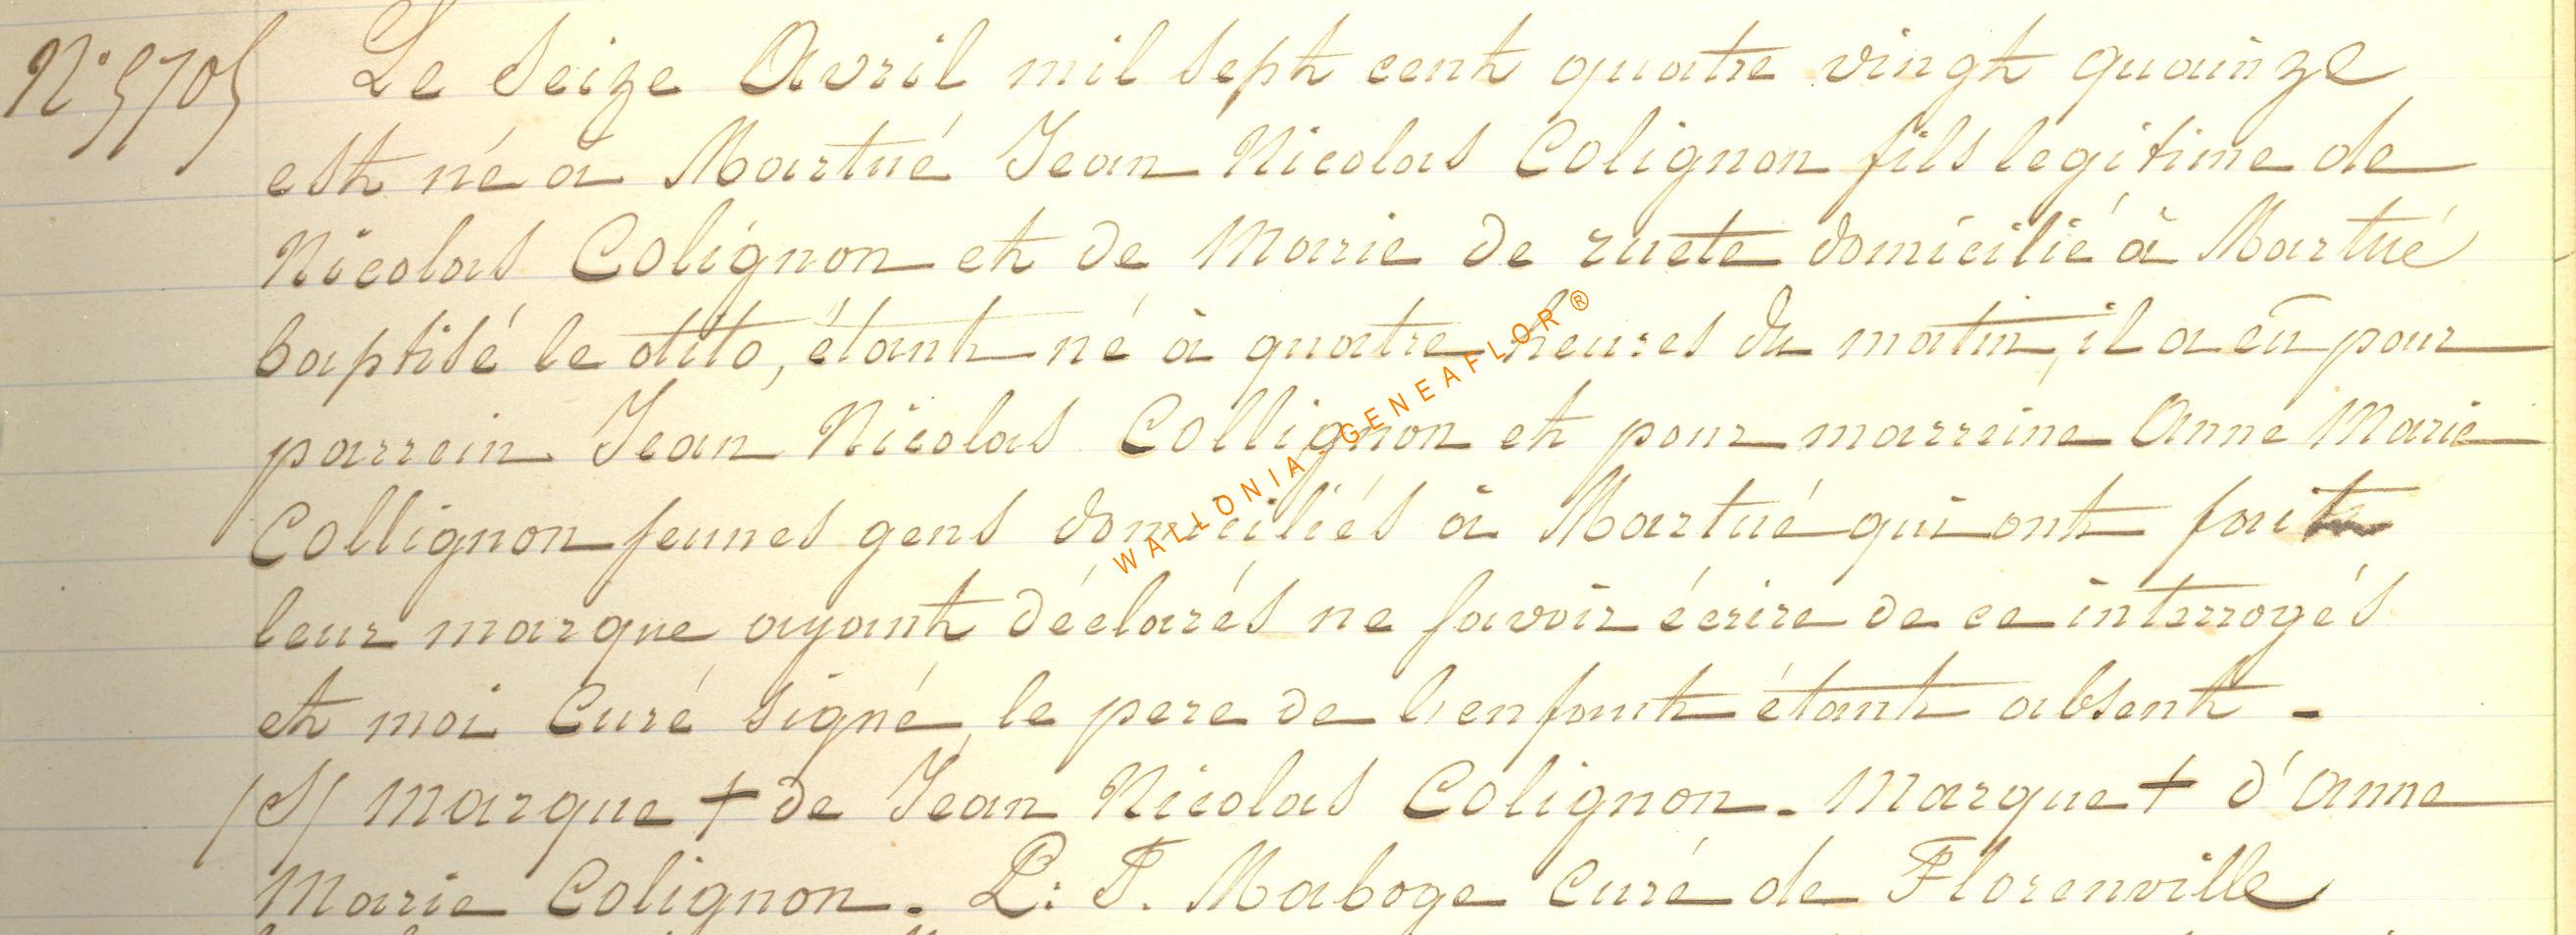 N° 5705 Le Seize Avril mil sept cent quatre vingt quainze
est né à Martué Jean Nicolas Colignon fils legitime de
Nicolas Colignon et de Marie de ruete domicilié à Martué
baptisé le dito, étant né à quatre heures du matin, il a eû pour
parrein Jean Nicolas Collignon et pour marreine Anne Marie
Collignon jeunes gens domiciliés à Martué qui ont fait
leur marque ayant déclarés ne savoir écrire de ce interrogés
et moi Curé signé, le pere de l'enfant étant absent -
/S/ Marque + de Jean Nicolas Colignon - Marque + d'Anne
Marie Colignon. L: F. Maboge Curé de Florenville
WALLONIA GENEAFLOR ®